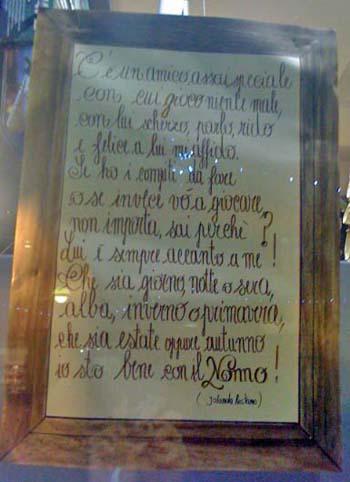 C'è un amico, assai speciale
con cui gioco niente male,
con lui scherzo, parlo, rido
e felice a lui mi affido.
Se ho i compiti da fare
o se invece vò a giocare,
non importa, sai perché?
Lui è sempre accanto a me!
Che sia giorno, notte o sera,
alba, inverno o primavera,
che sia estate oppure autunno
io sto bene con il Nonno!
(Jolanda